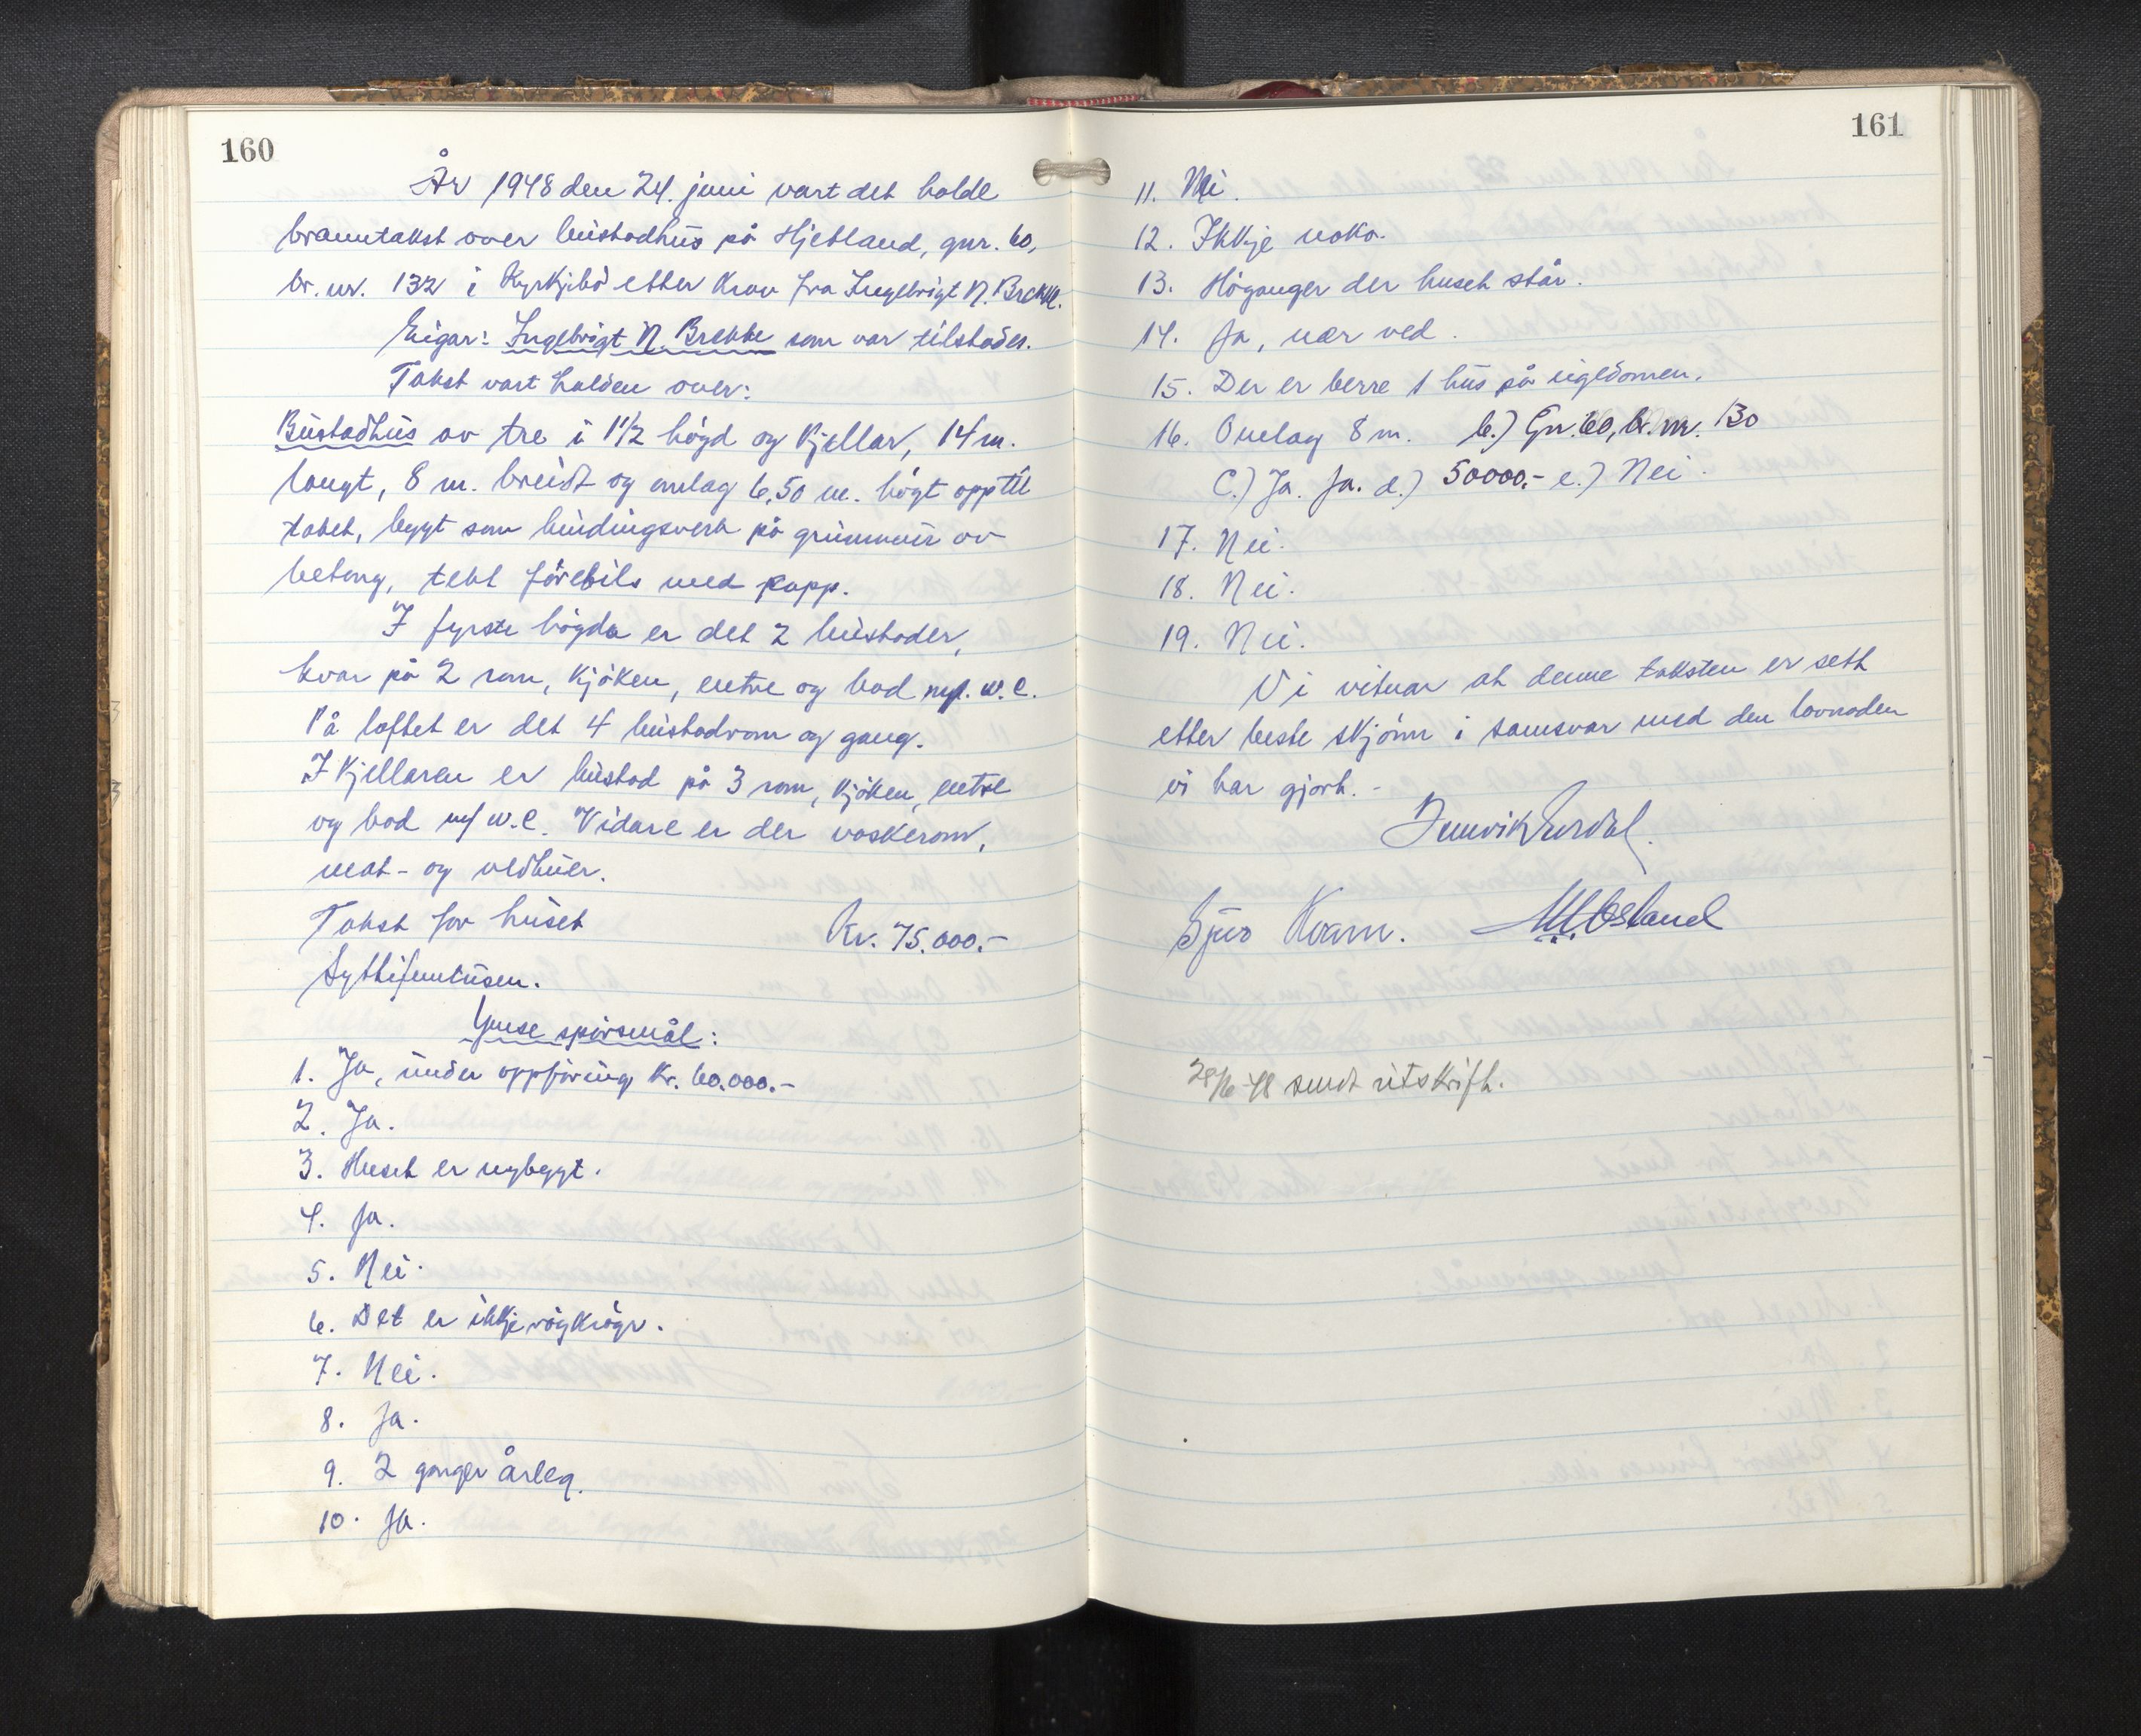 160
År 1948 den 24. juni vart det halde
branntakst over bústadhús på Hjetland, gnr. 60,
br. nr. 132 i Kyrkjebö etter krav fra Ingebrigt N. Brekke.
Eigar: Ingebrigt N. Brekke som var tilstades.
Takst vart halden over:
Bústadhús av tre i 1 1/2 högd og kjellar, 14 m.
langt, 8 m. breidt og omlag 6,50 m. högt opp til
taket, bygt som bindingsverk på grunnmúr av
betong, tekt förebils med papp.
I fyrste högda er det 2 bústader,
kvar på 2 rom, kjöken, entre og bad m/ w.c.
På loftet er det 4 bústadrom og gang.
I kjellaren er bústad på 3 rom, kjöken, entre
og bad m/ w.c. Vidare er der vaskerom,
mat- og vedbuer.
Takst for húset Kr. 75.000.-
Syttifemtúsen.
Ymse spörsmål:
1. Ja, únder oppföring kr. 60.000.-
2. Ja.
3. Huset er nybygt.
4. Ja.
5. Nei.
6. Det er ikkje röykröyr.
7. Nei.
8. Ja.
9. 2 ganger årleg.
10. Ja.
161
11. Nei.
12. Ikkje noko.
13. Höganger der huset står.
14. Ja, nær ved.
15. Der er berre 1 hús på eigedomen.
16. Omlag 8 m. b.) Gnr. 60, br. nr. 130
C.) Ja. Ja. d.) 50000.- e.) Nei.
17. Nei.
18. Nei.
19. Nei.
Vi vitnar at denne taksten er sett
etter beste skjönn i samsvar med den lovnaden
vi har gjort. -
Sjur Kvam. Østand
28/6-48 sendt utskrift.